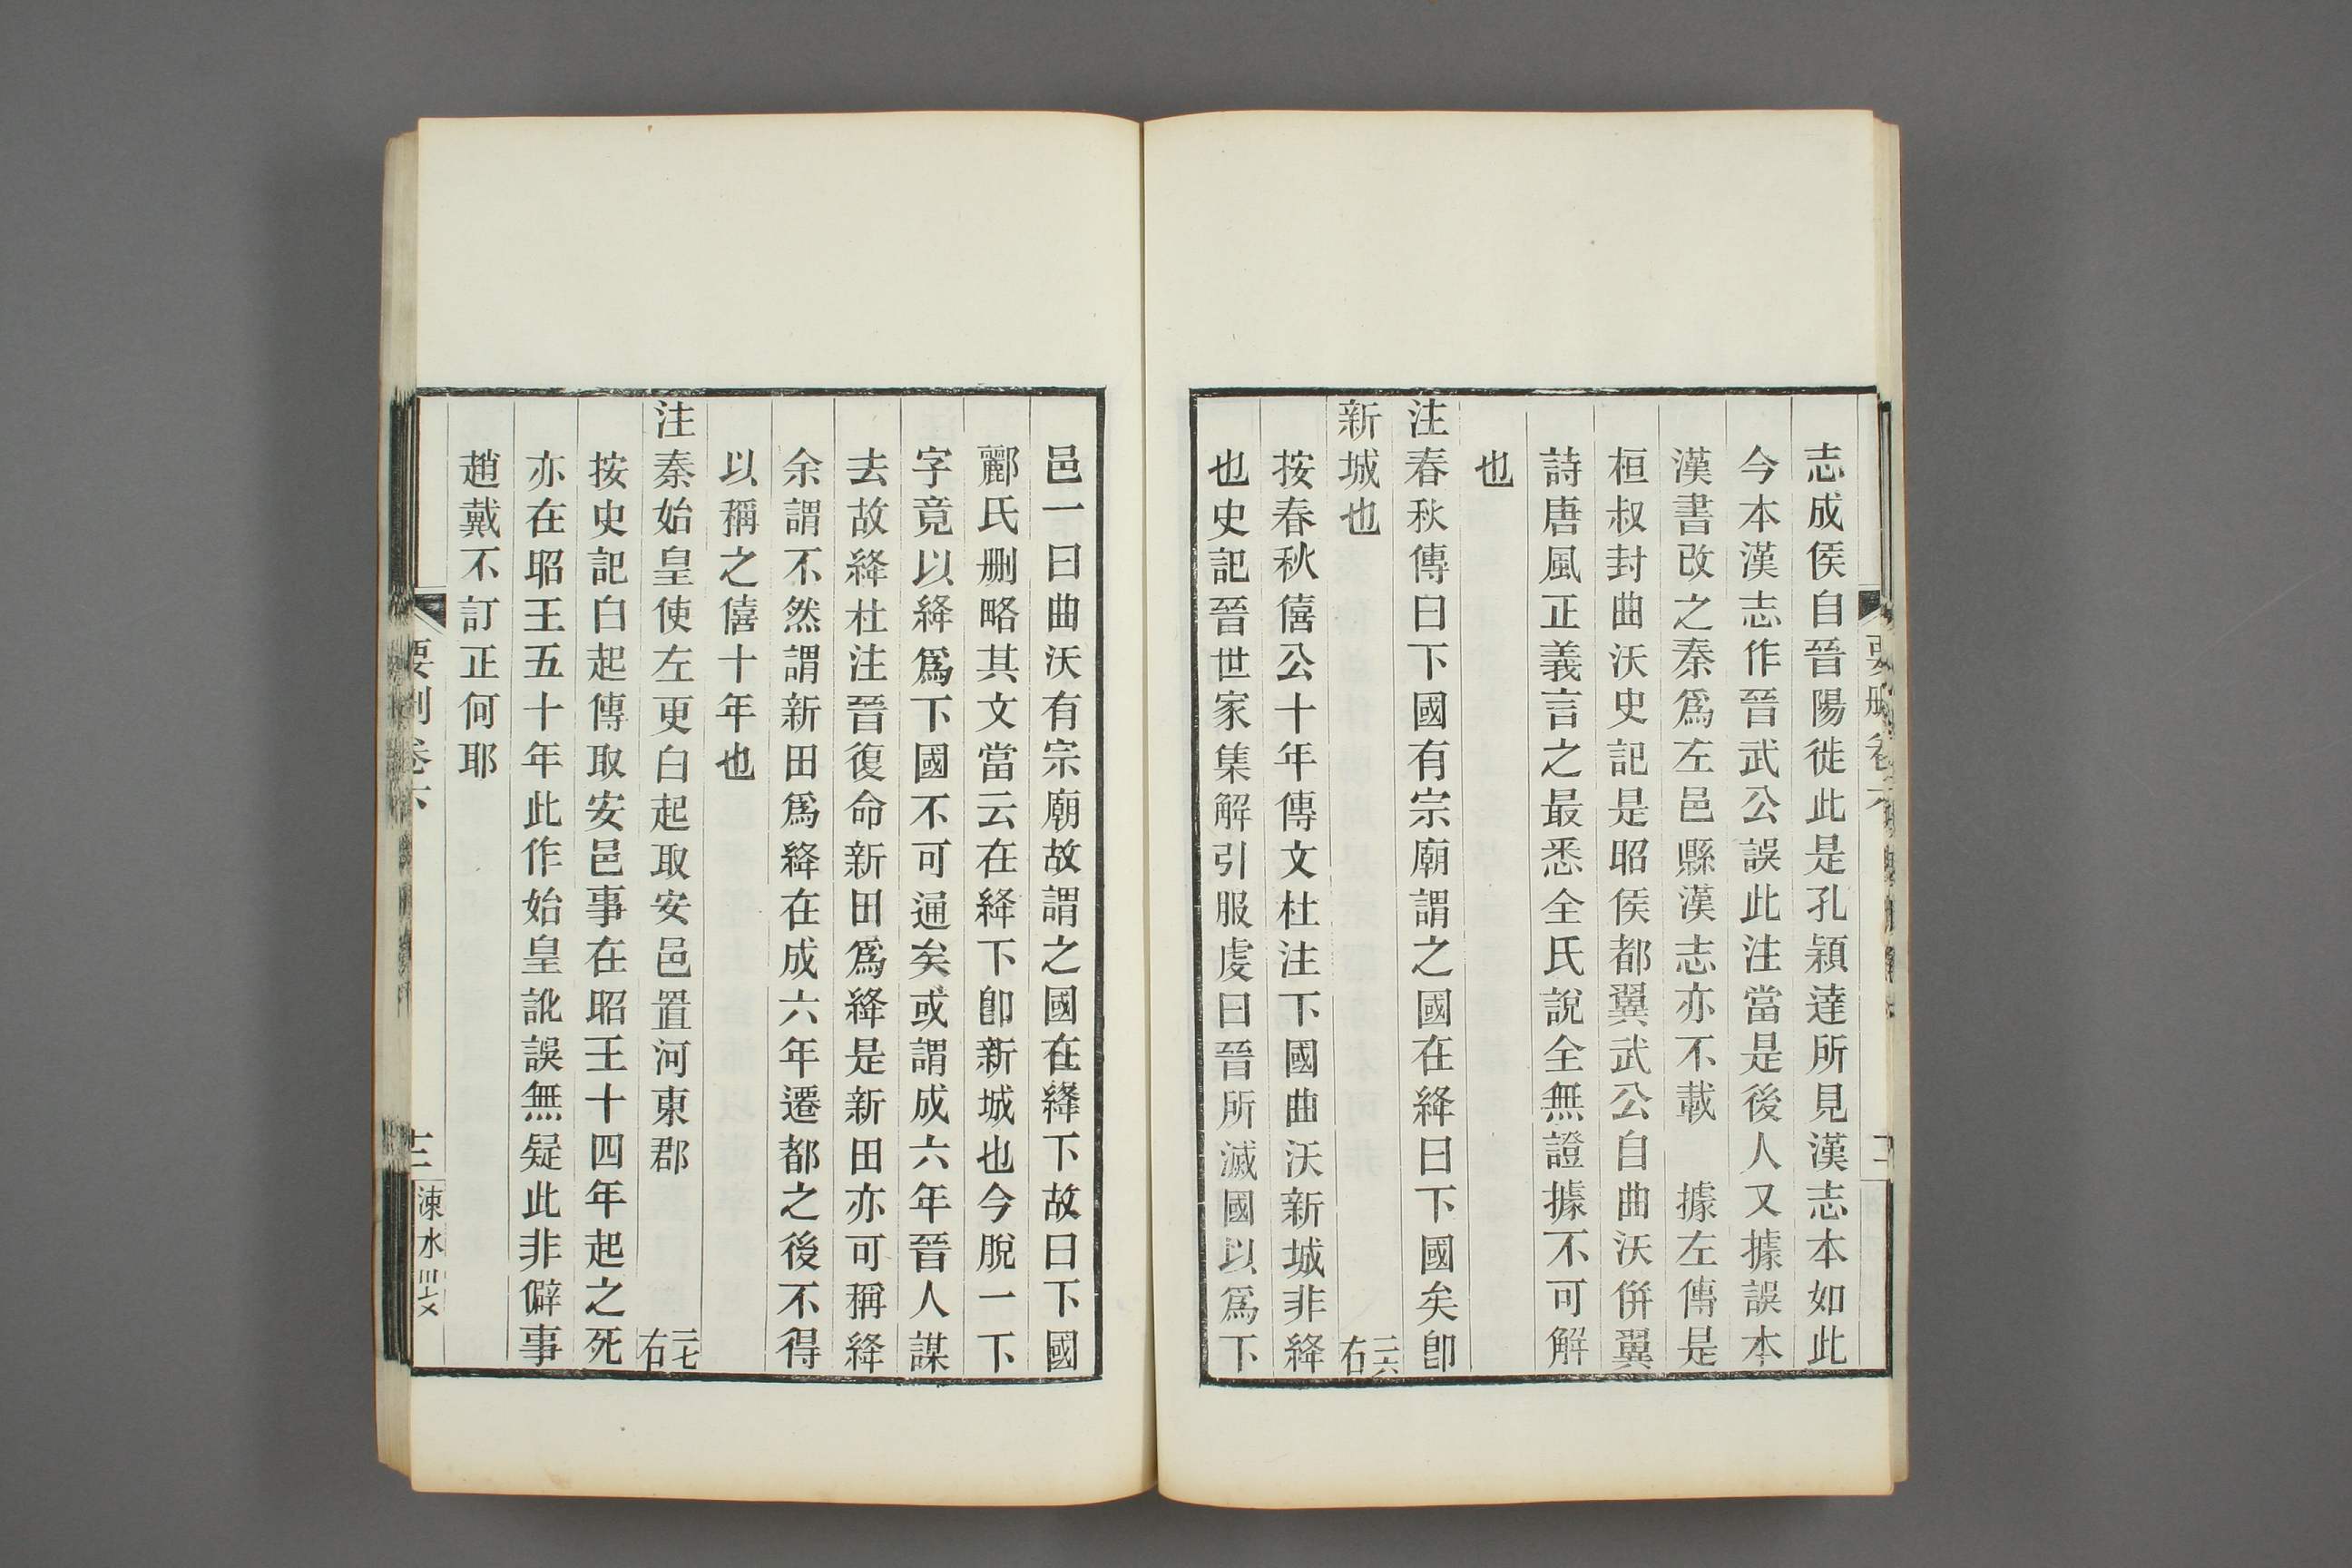 志成侯自晉陽徙此是孔穎達所見漢志本如此
今本漢志作晉武公誤此注當是後人又據誤本
漢書改之秦爲左邑縣漢志亦不載　據左傳是
桓叔封曲沃史記是昭侯都翼武公自曲沃併翼
詩唐風正義言之最悉全氏說全無證據不可解
也
注春秋傳曰下國有宗廟謂之國在絳曰下國矣卽
新城也　二六右
按春秋僖公十年傳文杜注下國曲沃新城非絳
也史記晉世家集解引服虔曰晉所滅國以爲下
邑一曰曲沃有宗廟故謂之國在絳下故曰下國
酈氏刪略其文當云在絳下卽新城也今脫一下
字竟以絳爲下國不可通矣或謂成六年晉人謀
去故絳杜注晉復命新田爲絳是新田亦可稱絳
余謂不然謂新田爲絳在成六年遷都之後不得
以稱之僖十年也
注秦始皇使左更白起取安邑置河東郡　二七右
按史記白起傳取安邑事在昭王十四年起之死
亦在昭王五十年此作始皇訛誤無疑此非僻事
趙戴不訂正何耶
要刪卷六
涑水